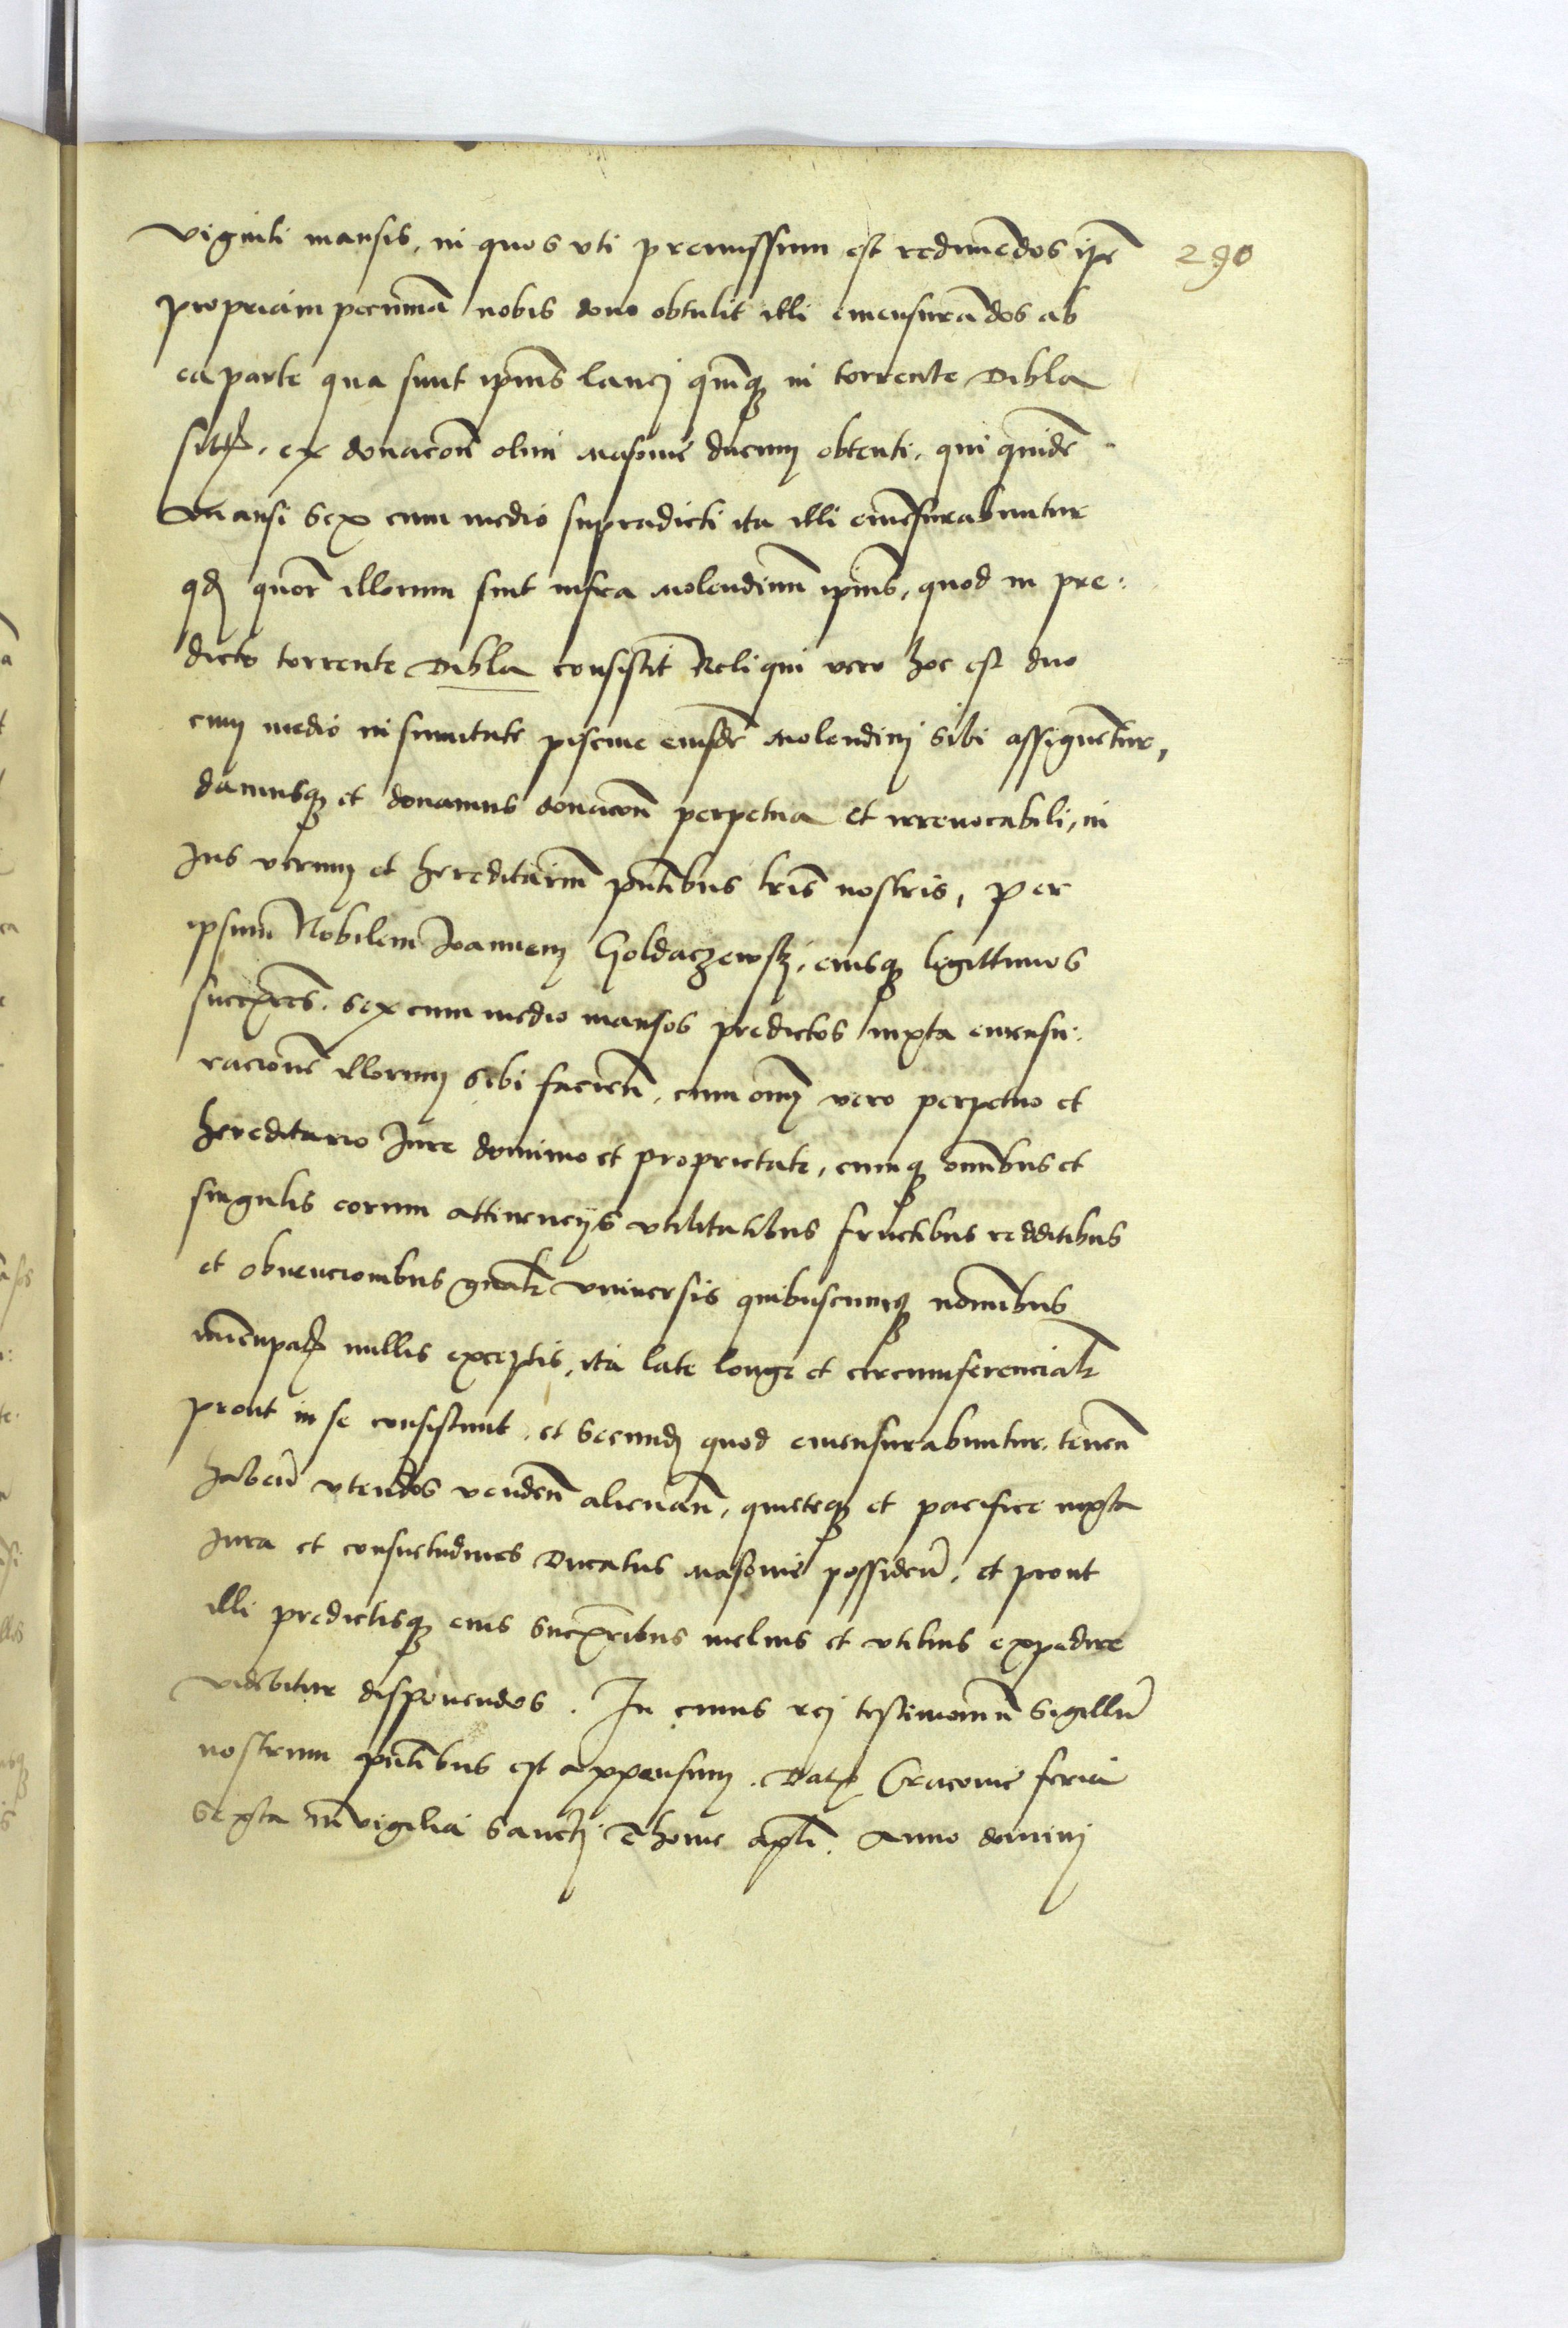 viginti mansis, in quos vti premissum est redimẽdos ipẽ
290
propriam pecuniã nobis dono obtulit illi emensurãdos ab
ea parte qua sunt ipius lanej quinqꝫ in torrente Dibla
sitꝭ, ex donacoẽ olim Masouie ducum obtenti, qui quidẽ
Mansi sex cum medio supradicti ita illi emẽsurabuntur
qđ quor̃ illorum sint infra Molendinũ ipius, quod in pre:
dicto torrente Dibla consistit Reliqui vero hoc est duo
cum medio in sumitate piscine eiusdẽ Molendinj sibi assignẽtur,
damusqꝫ et donamus donacoẽ perpetua et irreuocabili, in
Jus verum et hereditariũ pñtibus lris nostris, per
ipsum Nobilem Joannem Goldaczewskj, eiusqꝫ legittimos
succẽores, sex cum medio mansos predictos iuxta emensu:
racionẽ illorum sibi facieñ, cum omj vero perpetuo et
hereditario Jure dominio et proprietate, cumqꝫ omnibus et
singulis eorum attinencijs vtilitatibus fructibus redditibus
et obuencionibus gñalr vniuersis quibuscumqꝫ nominibus
nuncupatꝭ nullis exceptis, ita late longe et circumferencialr
prout in se consistunt, et secundũ quod emensurabuntur, teneñ
habeñ vtendos vendeñ alienañ, quieteqꝫ et pacifice iuxta
Jura et consuetudines Ducatus Masouie possideñ, et prout
illi predictisqꝫ eius succẽoribus melius et vtilius expedire
videbitur disponendos. In cuius rej testimoniũ Sigillũ
nostrum pñtibus est appensum. Datꝭ Cracouie feria
sexta in vigilia Sanctj Thome apli. Anno dominj